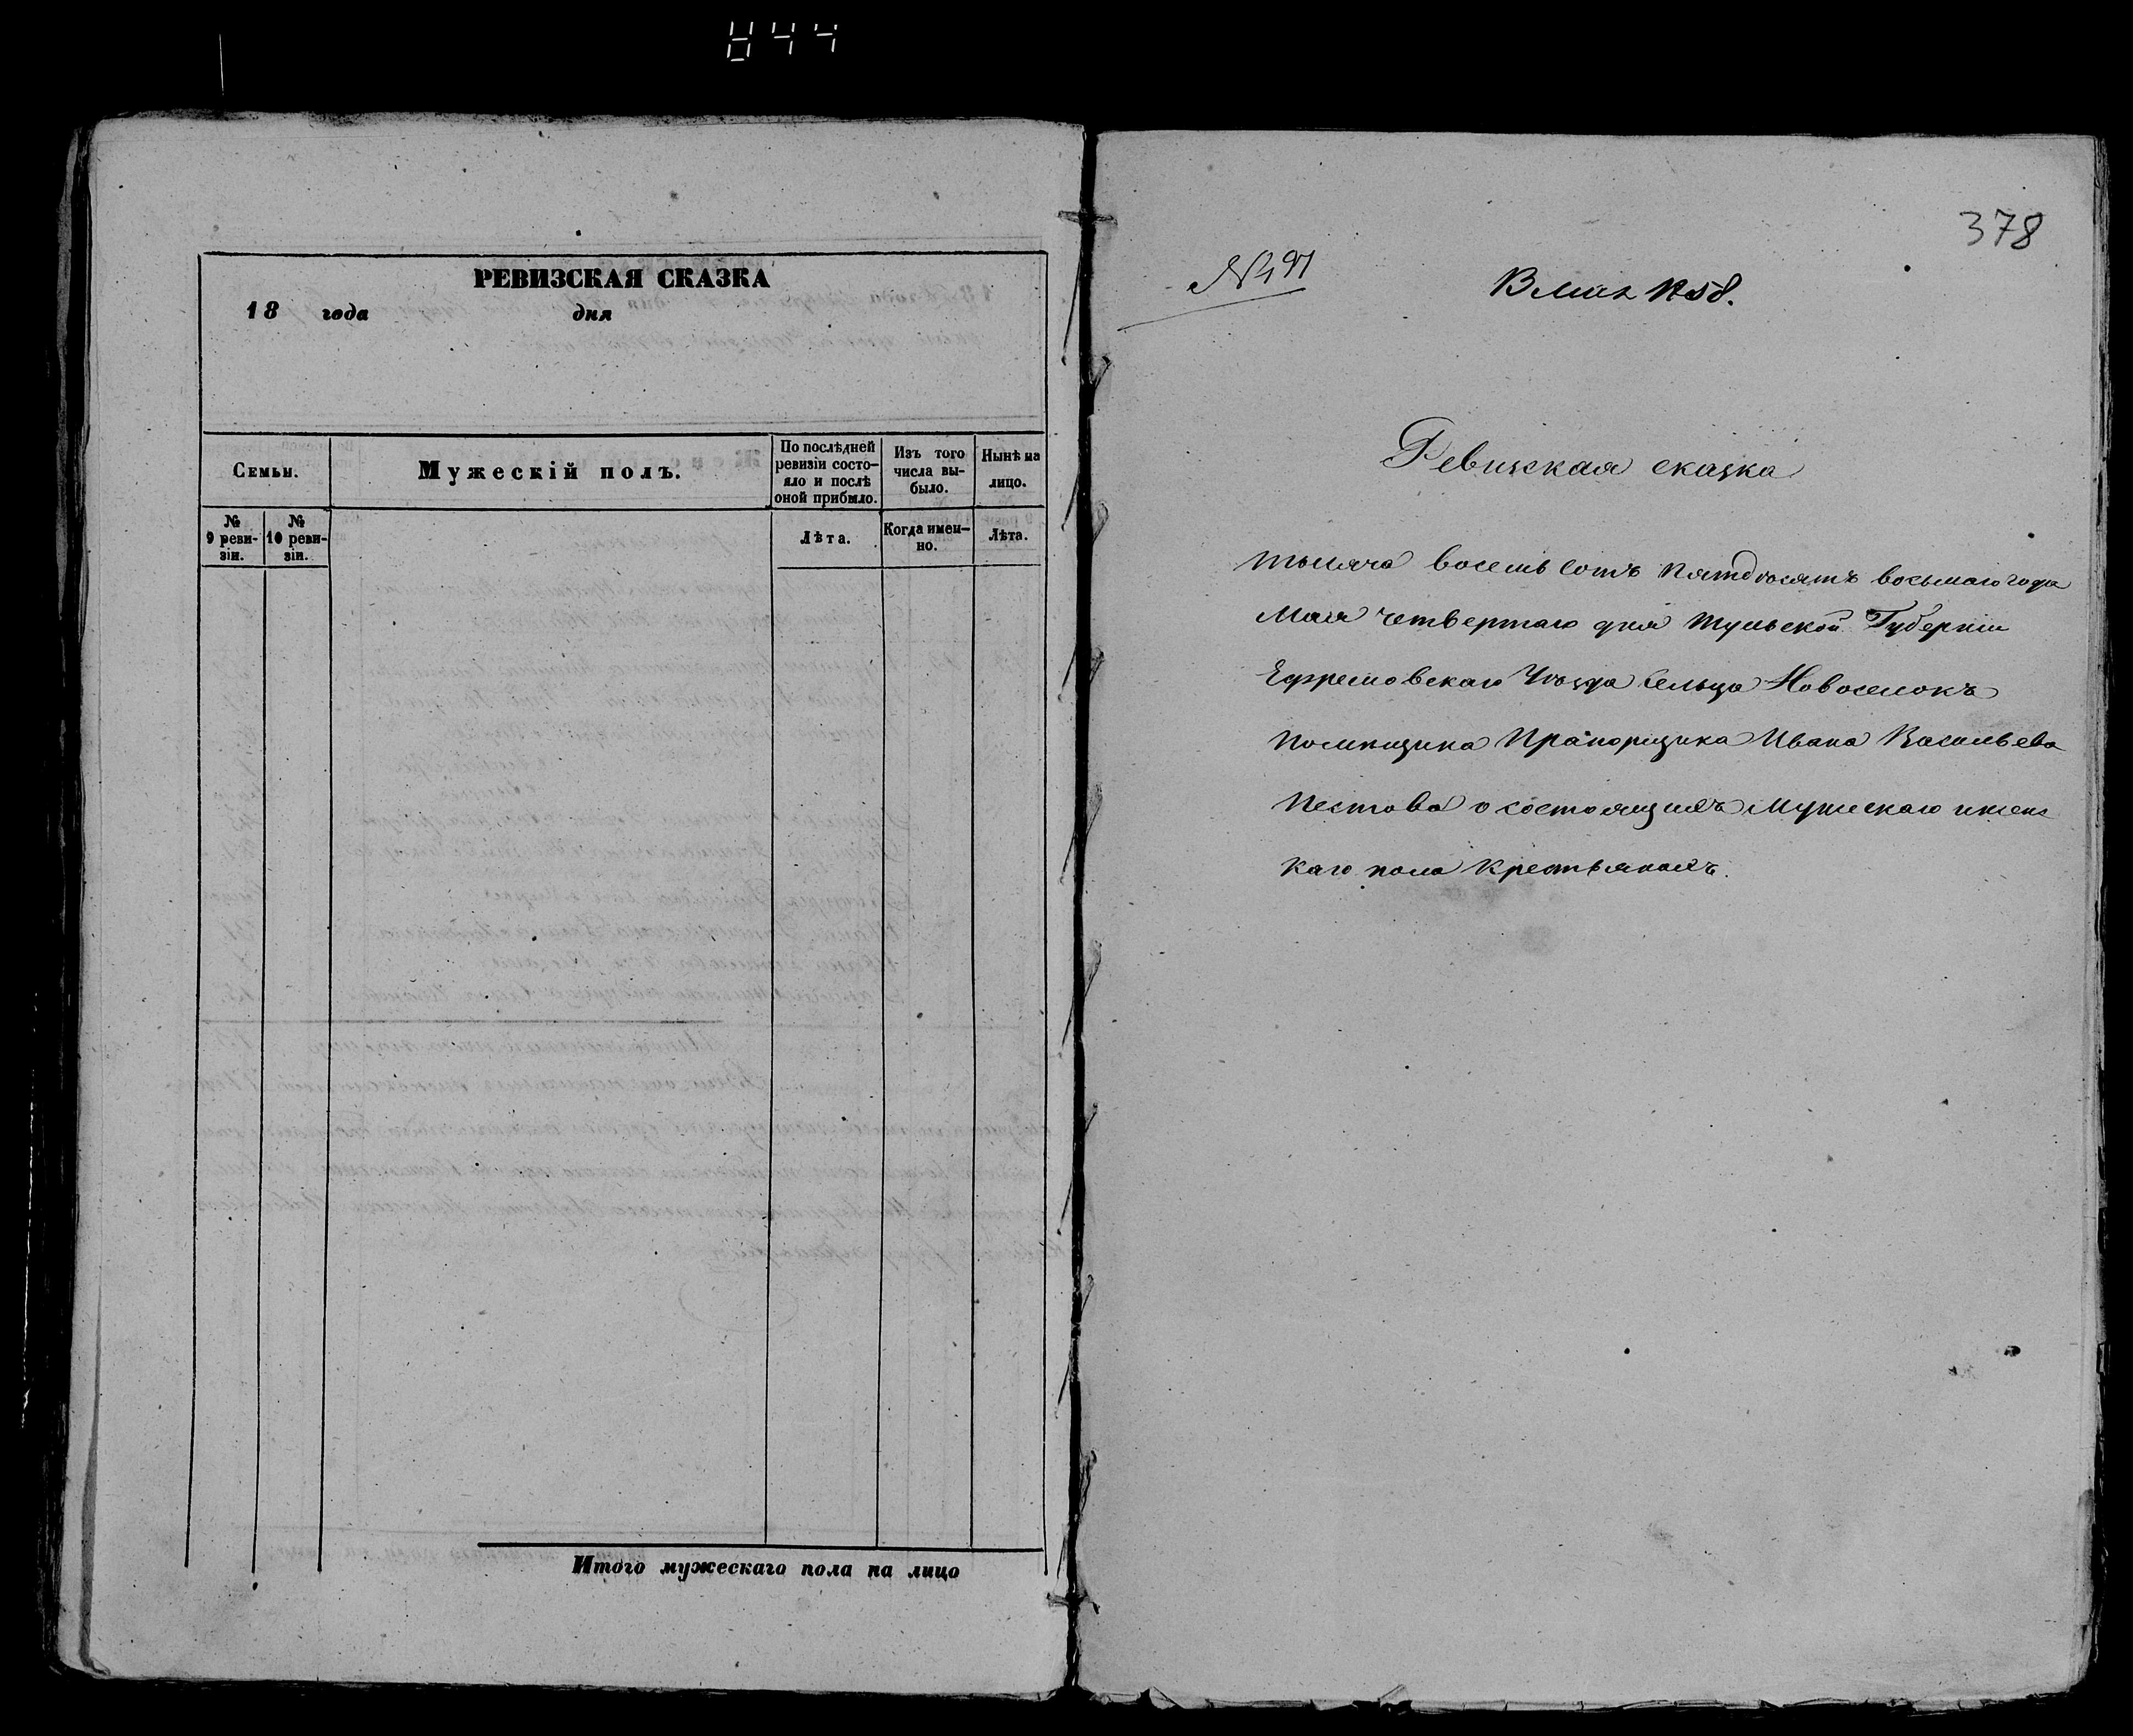 844
РЕВИЗСКАЯ СКАЗКА
18 года дня
Семьи.
Мужескій полъ.
По послѣдней
ревизіи состо-
яло и послѣ
оной прибыло.
Изъ того
числа вы-
было.
Нынѣ на
лицо.
№
9 реви-
зіи.
№
10 реви-
зіи.
Лѣта.
Когда имен-
но.
Лѣта.
Итого мужескаго пола на лицо
378
8 Мая 1858.
Ревизская сказка
тысяча восемь сотъ пятдѣсятъ восьмаго года
Мая четвертаго дня Тульской Губерніи
Ефремовскаго Уѣзда Сельца Новоселокъ
помѣщика Прапорщика Ивана Васильева
Пестова о состоящихъ мужескаго иженс
каго пола крестьянахъ.